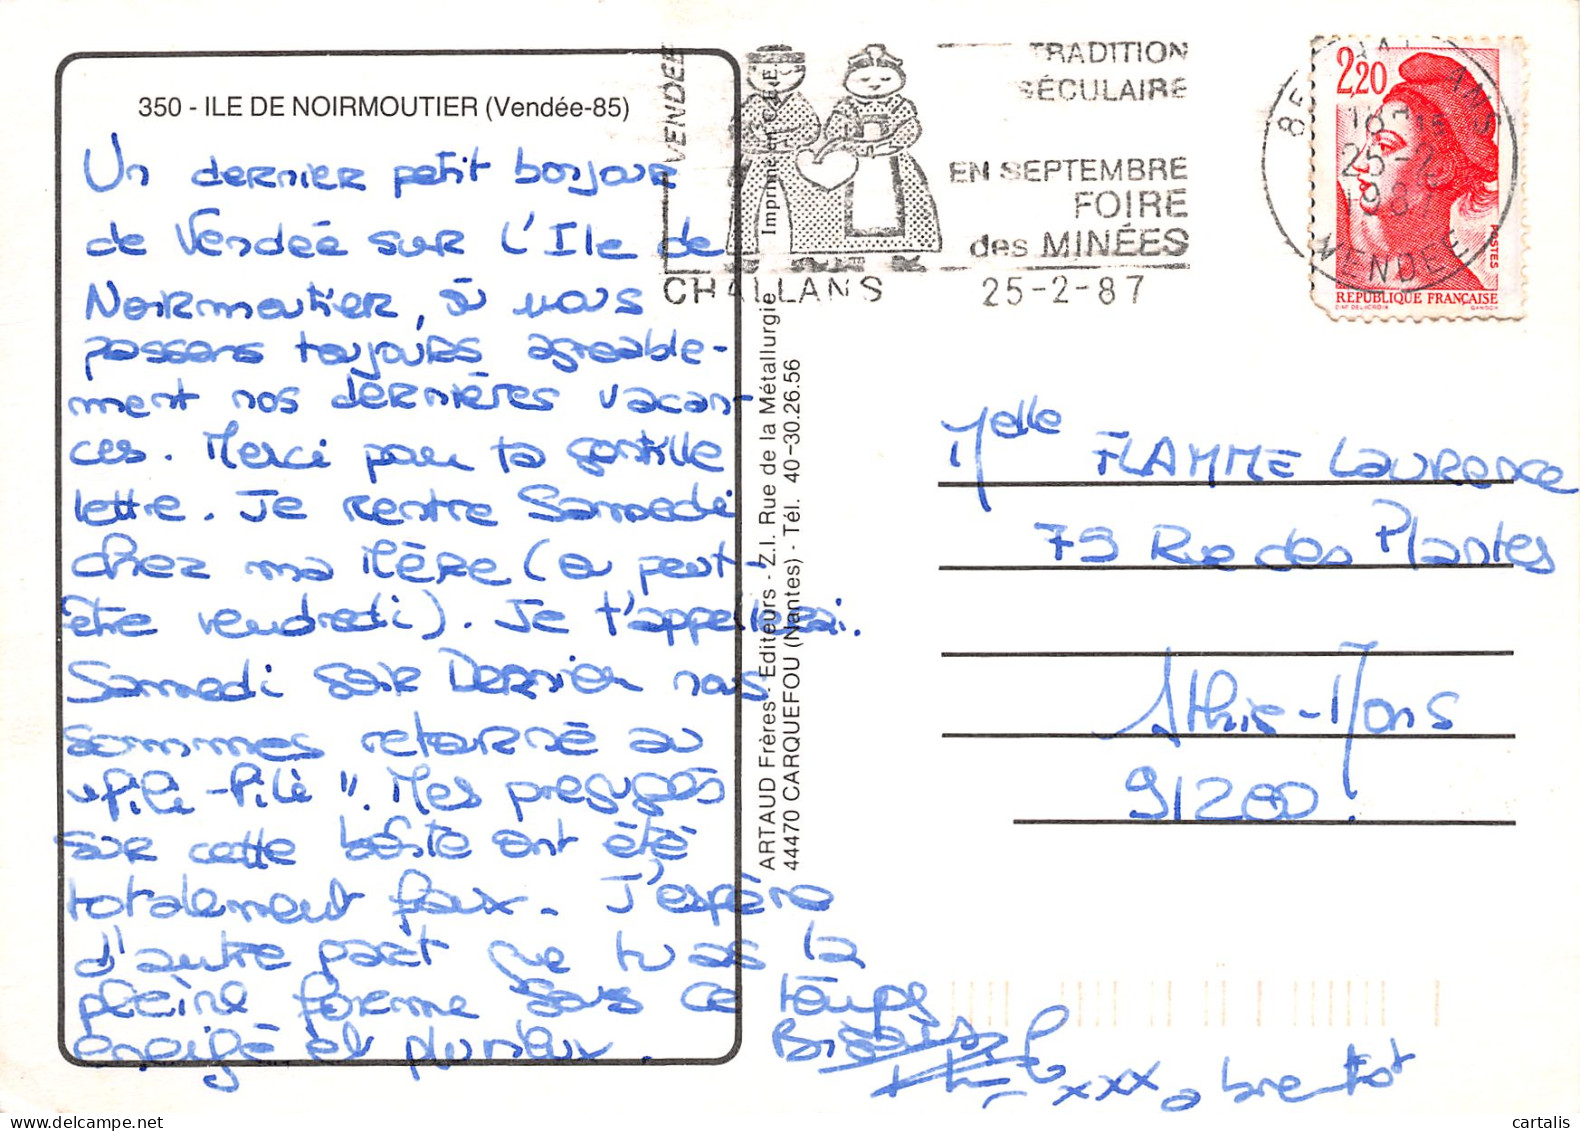 350 - ILE DE NOIRMOUTIER (Vendée-85)
Un dernier petit bonjour
de Vendée sur l'Ile de
Noirmoutier, où nous
passons toujours agreable-
ment nos dernières vacan-
ces. Merci pour ta gentille
lettre. Je rentre Samedi
chez ma Mère (ou peut-
être vendredi). Je t'appellerai.
Samedi soir Dernier nous
sommes retourné au
"pili-pili". Mes prejugés
sur cette boîte ont été
totalement faux. J'espère
d'autre part que tu as la
pleine forme sous ce temps
enneigé et pluvieux.
Bisous
xxx a bientot
ARTAUD Frères - Editeurs - Z.I. Rue de la Métallurgie
44470 CARQUEFOU (Nantes) - Tél. 40-30.26.56
Imprimé en C.E.E.
VENDEE
CHALLANS
TRADITION
SÉCULAIRE
EN SEPTEMBRE
FOIRE
des MINÉES
25-2-87
2,20
POSTES
RÉPUBLIQUE FRANÇAISE
D'AP. DELACROIX
GANDON
25-2
1987
VENDEE
Melle FLAMME Laurence
79 Rue des Plantes
Athis-Mons
91200.
www.cartalis.com
cartalis